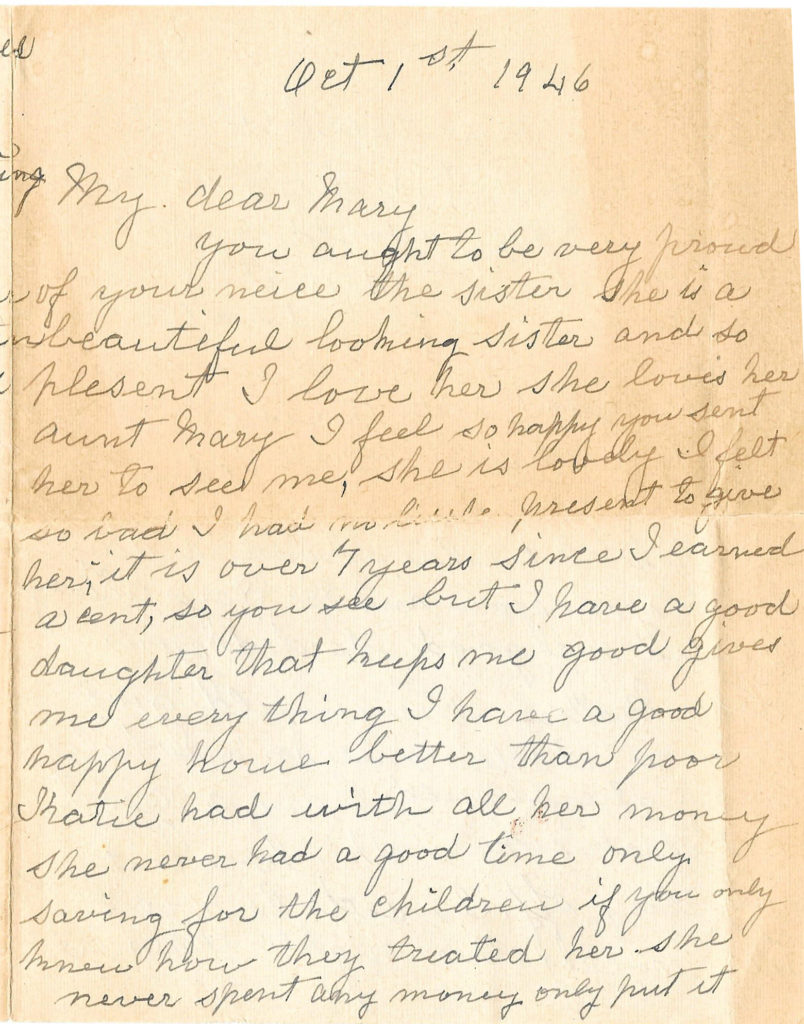 Oct 1st 1946
My dear Mary
you aught to be very proud
of your neice the sister she is a
beautiful looking sister and so
plesent I love her she loves her
aunt Mary I feel so happy you sent
her to see me, she is lovely I felt
so bad I had no little present to give
her, it is over 7 years since I earned
a cent, so you see but I have a good
daughter that keeps me good gives
me every thing I have a good
happy home better than poor
Katie had with all her money
she never had a good time only
saving for the children if you only
knew how they treated her she
never spent any money only put it